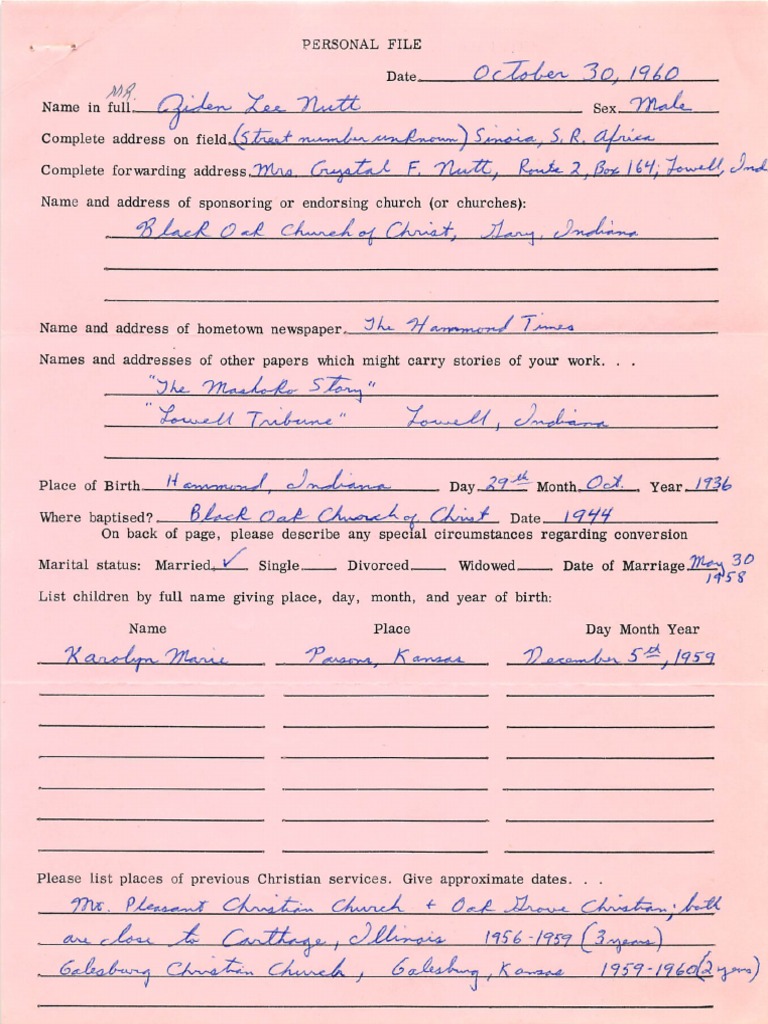 PERSONAL FILE
Date October 30, 1960
MR.
Name in full. Ziden Lee Nutt Sex. Male
Complete address on field. (Street number unknown) Sinoia, S.R. Africa
Complete forwarding address. Mrs. Crystal F. Nutt, Route 2, Box 164; Lowell, Ind
Name and address of sponsoring or endorsing church (or churches):
Black Oak Church of Christ, Gary, Indiana
Name and address of hometown newspaper. The Hammond Times
Names and addresses of other papers which might carry stories of your work. . .
"The Mashoko Story"
"Lowell Tribune" Lowell, Indiana
Place of Birth Hammond, Indiana Day 29th Month Oct. Year 1936
Where baptised? Black Oak Church of Christ Date 1944
On back of page, please describe any special circumstances regarding conversion
Marital status: Married ✓ Single Divorced Widowed Date of Marriage May 30
1958
List children by full name giving place, day, month, and year of birth:
Name Place Day Month Year
Karolyn Marie Parsons, Kansas December 5th, 1959
Please list places of previous Christian services. Give approximate dates. . .
Mt. Pleasant Christian Church + Oak Grove Christian; both
are close to Carthage, Illinois 1956-1959 (3 years)
Galesburg Christian Church, Galesburg, Kansas 1959-1960 (2 years)